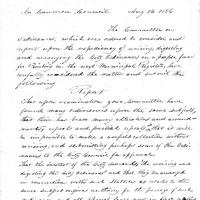 In Common Council Aug 14 1856
The Committee on
Ordinances, which was ordered to consider and
report upon the expediency of revising, digesting
and arranging the City Ordinances in a proper form
for Printing in the next Municipal Register, have
carefully considered the matter and submit the
following
Report
That upon examination your Committee have
found many ordinances upon the same subject,
that there has been many alterations and amend-
ments, repeals and partial repeals, that it will
be impossible to make a perfect collection without
revising, and submitting perhaps some of the Ordi-
nances to the City Council for approval.
For the matter of the City
digesting the City ordinances and that they be arranged
in connection with such Statutes